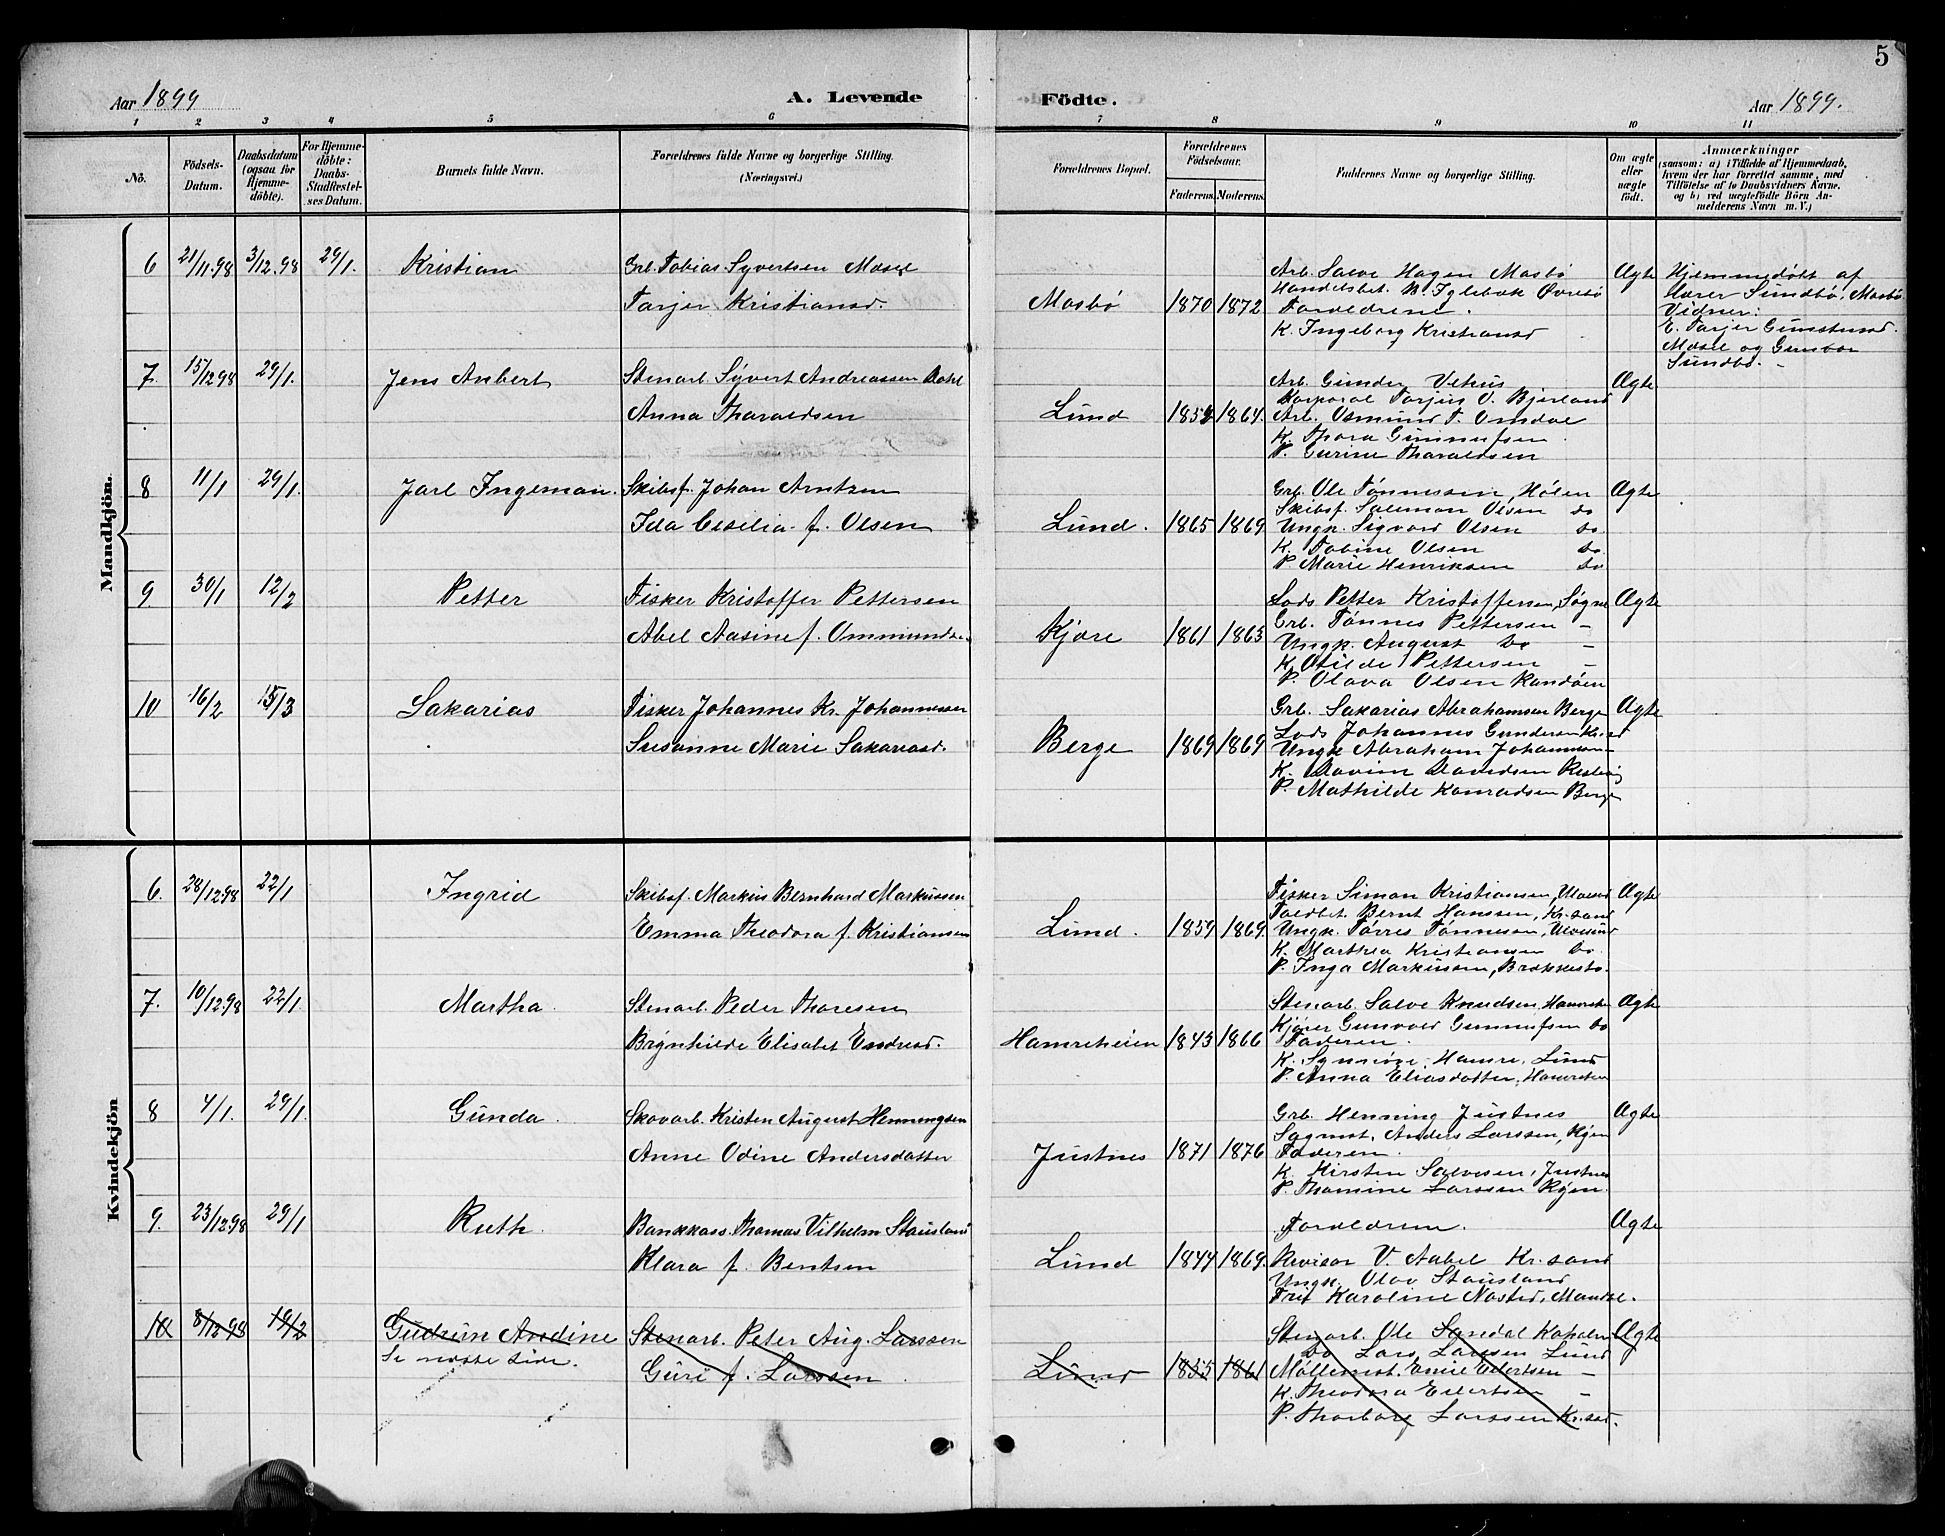 5
Aar 1899
A. Levende
Födte.
Aar 1899.
1 2 3 4 5 6 7 8 9 10 11
No.
Födsels-Datum.
Daabsdatum (ogsaa for Hjemme-döbte).
For Hjemme-döbte: Daabs-Stadfæstel-ses Datum.
Barnets fulde Navn.
Forældrenes fulde Navne og borgerlige Stilling.
(Næringsvei.)
Forældrenes Bopæl.
Forældrenes Födselsaar.
Faderens. Moderens.
Faddernes Navne og borgerlige Stilling.
Om ægte eller uægte födt.
Anmærkninger
(saasom: a) i Tilfælde af Hjemmedaab, hvem der har forrettet samme, med Tilföielse af to Daabsvidners Navne, og b) ved uægtefödte Börn An-melderens Navn m. V.)
Mandkjön.
6 21/11.98 3/12.98 29/1. Kristian
Grb. Tobias Syvertsen Mosel
Tarjer Kristiansd.
Mosbö 1870 1872
Arb. Salve Hagen Mosbö
Handelsbet. N. Iglebæk Øvrebö
Forældrene.
K. Ingeborg Kristiansd
Ægte
Hjemmedöbt af
Lærer Sundbö, Mosbö
Vidner:
E. Tarjer Gunstensd.
Mosel og Gunvor
Sundbö.
7. 15/12.98 29/1. Jens Anbert
Stenarb. Syvert Andreassen Dahl
Anna Tharaldsen
Lund 1852 1864.
Arb. Gunder Vehus
Korporal Tarjus V. Bjerland
Arb. Osmund T. Omdal
K. Thora Gunnufsen
P. Gurine Tharaldsen
Ægte
8 11/1 29/1. Jarl Ingeman.
Skibsf. Johan Arntzen
Ida Cecilia f. Olsen
Lund. 1865 1869
Grb. Ole Tönnessen, Hölen
Skibsf. Salemon Olsen do
Ungk. Sigvard Olsen do.
K. Tobine Olsen do.
P. Marie Henriksen do
Ægte
9 30/1 12/2 Petter
Fisker Kristoffer Pettersen
Abel Aasine f. Ommundsen
Kjære 1861 1863
Lods Petter Kristoffersen, Søgne
Grb. Tönnes Pettersen -
Ungk. August do -
K. Otilde Pettersen -
P. Olava Olsen Randöen
Ægte
10 16/2 15/3 Sakarias
Fisker Johannes Kr. Johannessen
Susanne Marie Sakariasd.
Berge 1869 1869
Grb. Sakarias Abrahamsen Berge
Lods Johannes Gundersen
Ungk Abraham Johannsen
K. Davine Davidsen
P. Mathilde Konradsen Berge
Ægte
Kvindekjön
6. 28/12.98 22/1 Ingrid
Skibsf. Markus Bernhard Markussen
Emma Theodora f. Kristiansen
Lund. 1859 1869.
Fisker Simon Kristiansen, Ulvesund
Toldbet. Bernt Hanssen, Kr.sand
Ungk. Törres Tönnesen, Ulvesund
K. Marthea Kristiansen do.
P. Inga Markussen, Brækkestö.
Ægte
7. 10/12.98 22/1. Martha.
Stenarb. Peder Thoresen
Brynhilde Elisabet Endresd.
Hamreheien 1843 1866
Stenarb. Salve Knudsen, Hamrehei
Kjörer Gunvald Gunnufsen do
Faderen.
K. Synnöve Hamre, Lund
P. Anna Eliasdatter, Hamrehei
Ægte
8 4/1. 29/1. Gunda.
Skovarb. Kristen August Henningsen
Anne Odine Andersdatter
Justnes 1871 1876
Grb. Henning Justnes
Sagmst. Anders Larssen, Ryen
Faderen.
K. Kirsten Salvesen, Justnes
P. Thomine Larssen Ryen.
Ægte
9. 23/12.98 29/1 Ruth.
Bankkass. Thomas Vilhelm Stausland
Klara f. Bentsen
Lund 1844 1869.
Forældrene.
Revisor V. Aabel Kr.sand
Ungk. Olav Stausland
Frk Karoline Nosted, Mandal.
Ægte
10 8/12.98 19/2 Gudrun Andine
Se næste Side.
Stenarb. Peter Aug. Larssen
Guri f. Larssen
Lund 1855 1861
Stenarb. Ole Sandal
do Lars Larssen Lund
Möllemst. Emil Eilertsen -
K. Theodora Eilertsen -
P. Thorborg Larssen Kr.sand.
Ægte